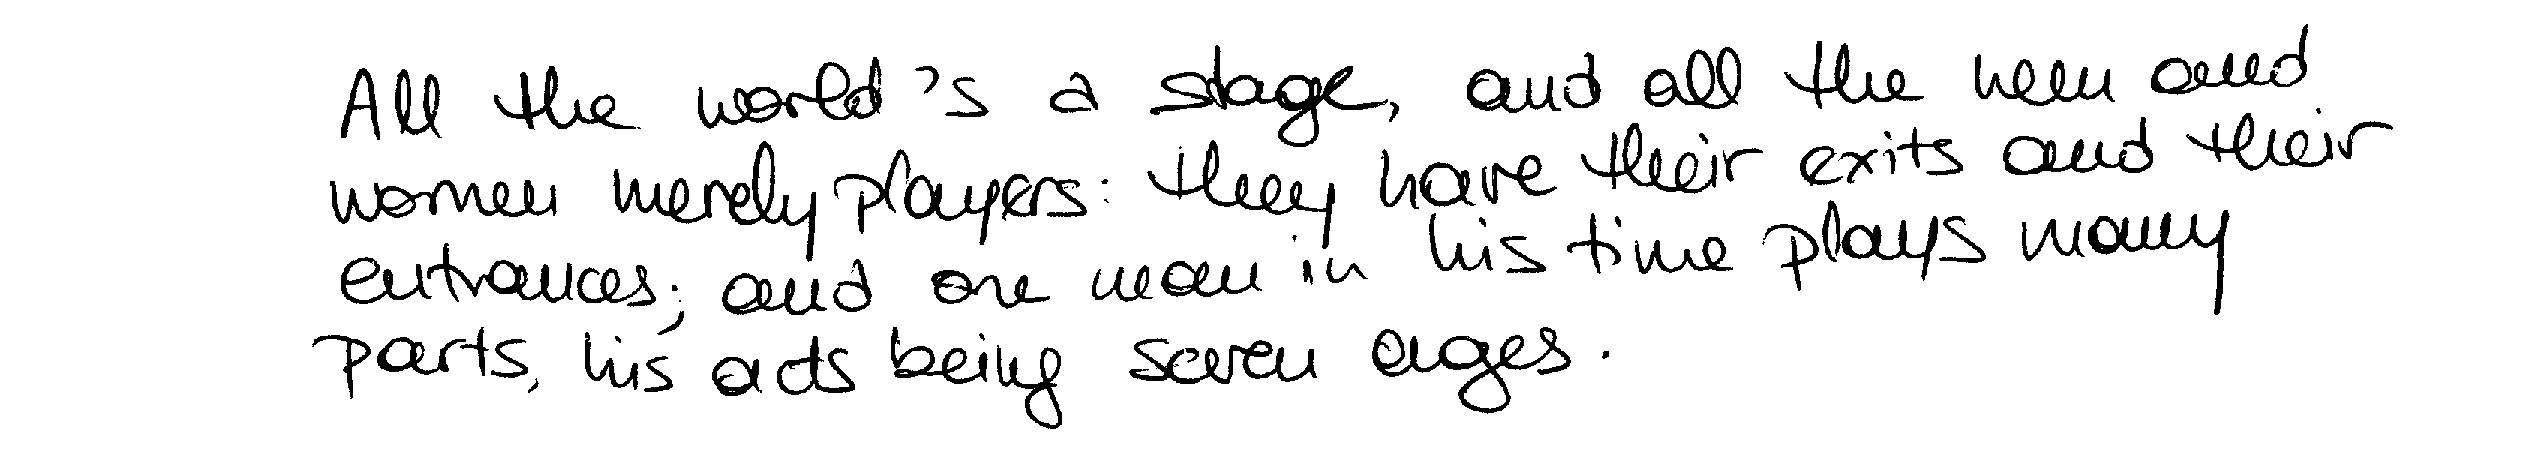 All the world's a stage, and all the men and
women merely players: they have their exits and their
entrances; and one man in his time plays many
parts, his acts being seven ages.